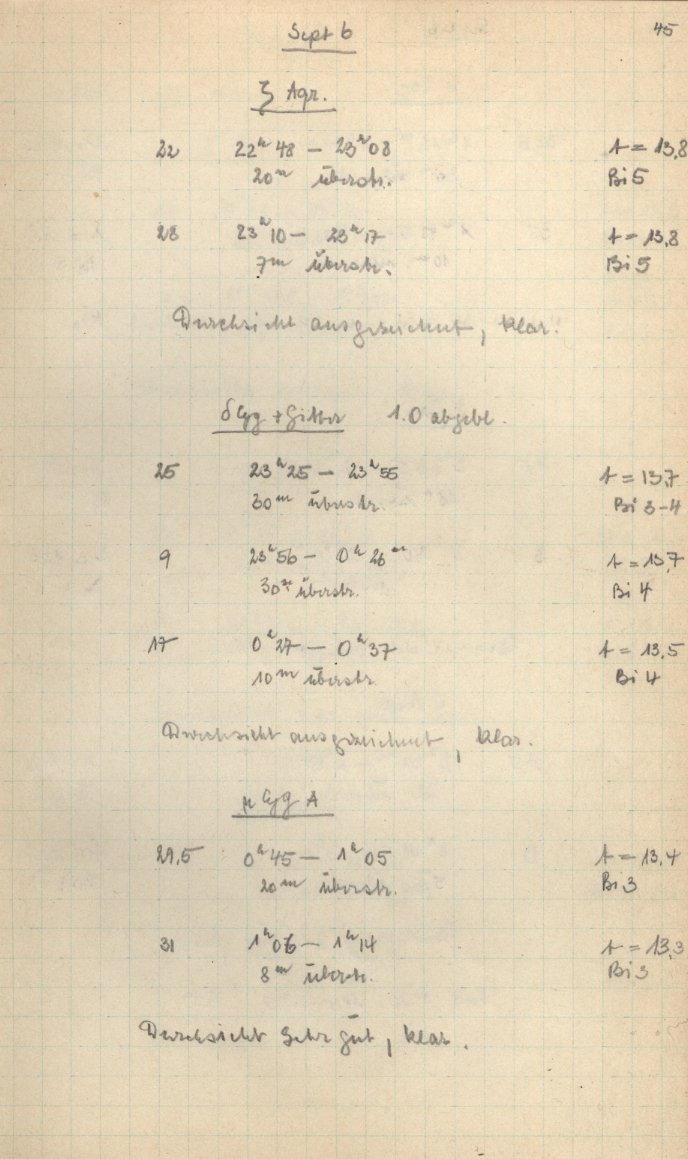 Sept 6 45
ζ Aqr.
22 22ʰ48 – 23ʰ08 t = 13,8
20ᵐ überstr. Bi 5
28 23ʰ10 – 23ʰ17 t = 13,8
7ᵐ überstr. Bi 5
Durchsicht ausgezeichnet, klar.
δ Cyg + Gitter 1.0 abgebl.
25 23ʰ25 – 23ʰ55 t = 13,7
30ᵐ überstr. Bi 3-4
9 23ʰ56 – 0ʰ26ᵐ t = 13,7
30ᵐ überstr. Bi 4
17 0ʰ27 – 0ʰ37 t = 13,5
10ᵐ überstr. Bi 4
Durchsicht ausgezeichnet, klar.
μ Cyg A
29,5 0ʰ45 – 1ʰ05 t = 13,4
20ᵐ überstr. Bi 3
31 1ʰ06 – 1ʰ14 t = 13,3
8ᵐ überstr. Bi 3
Durchsicht sehr gut, klar.